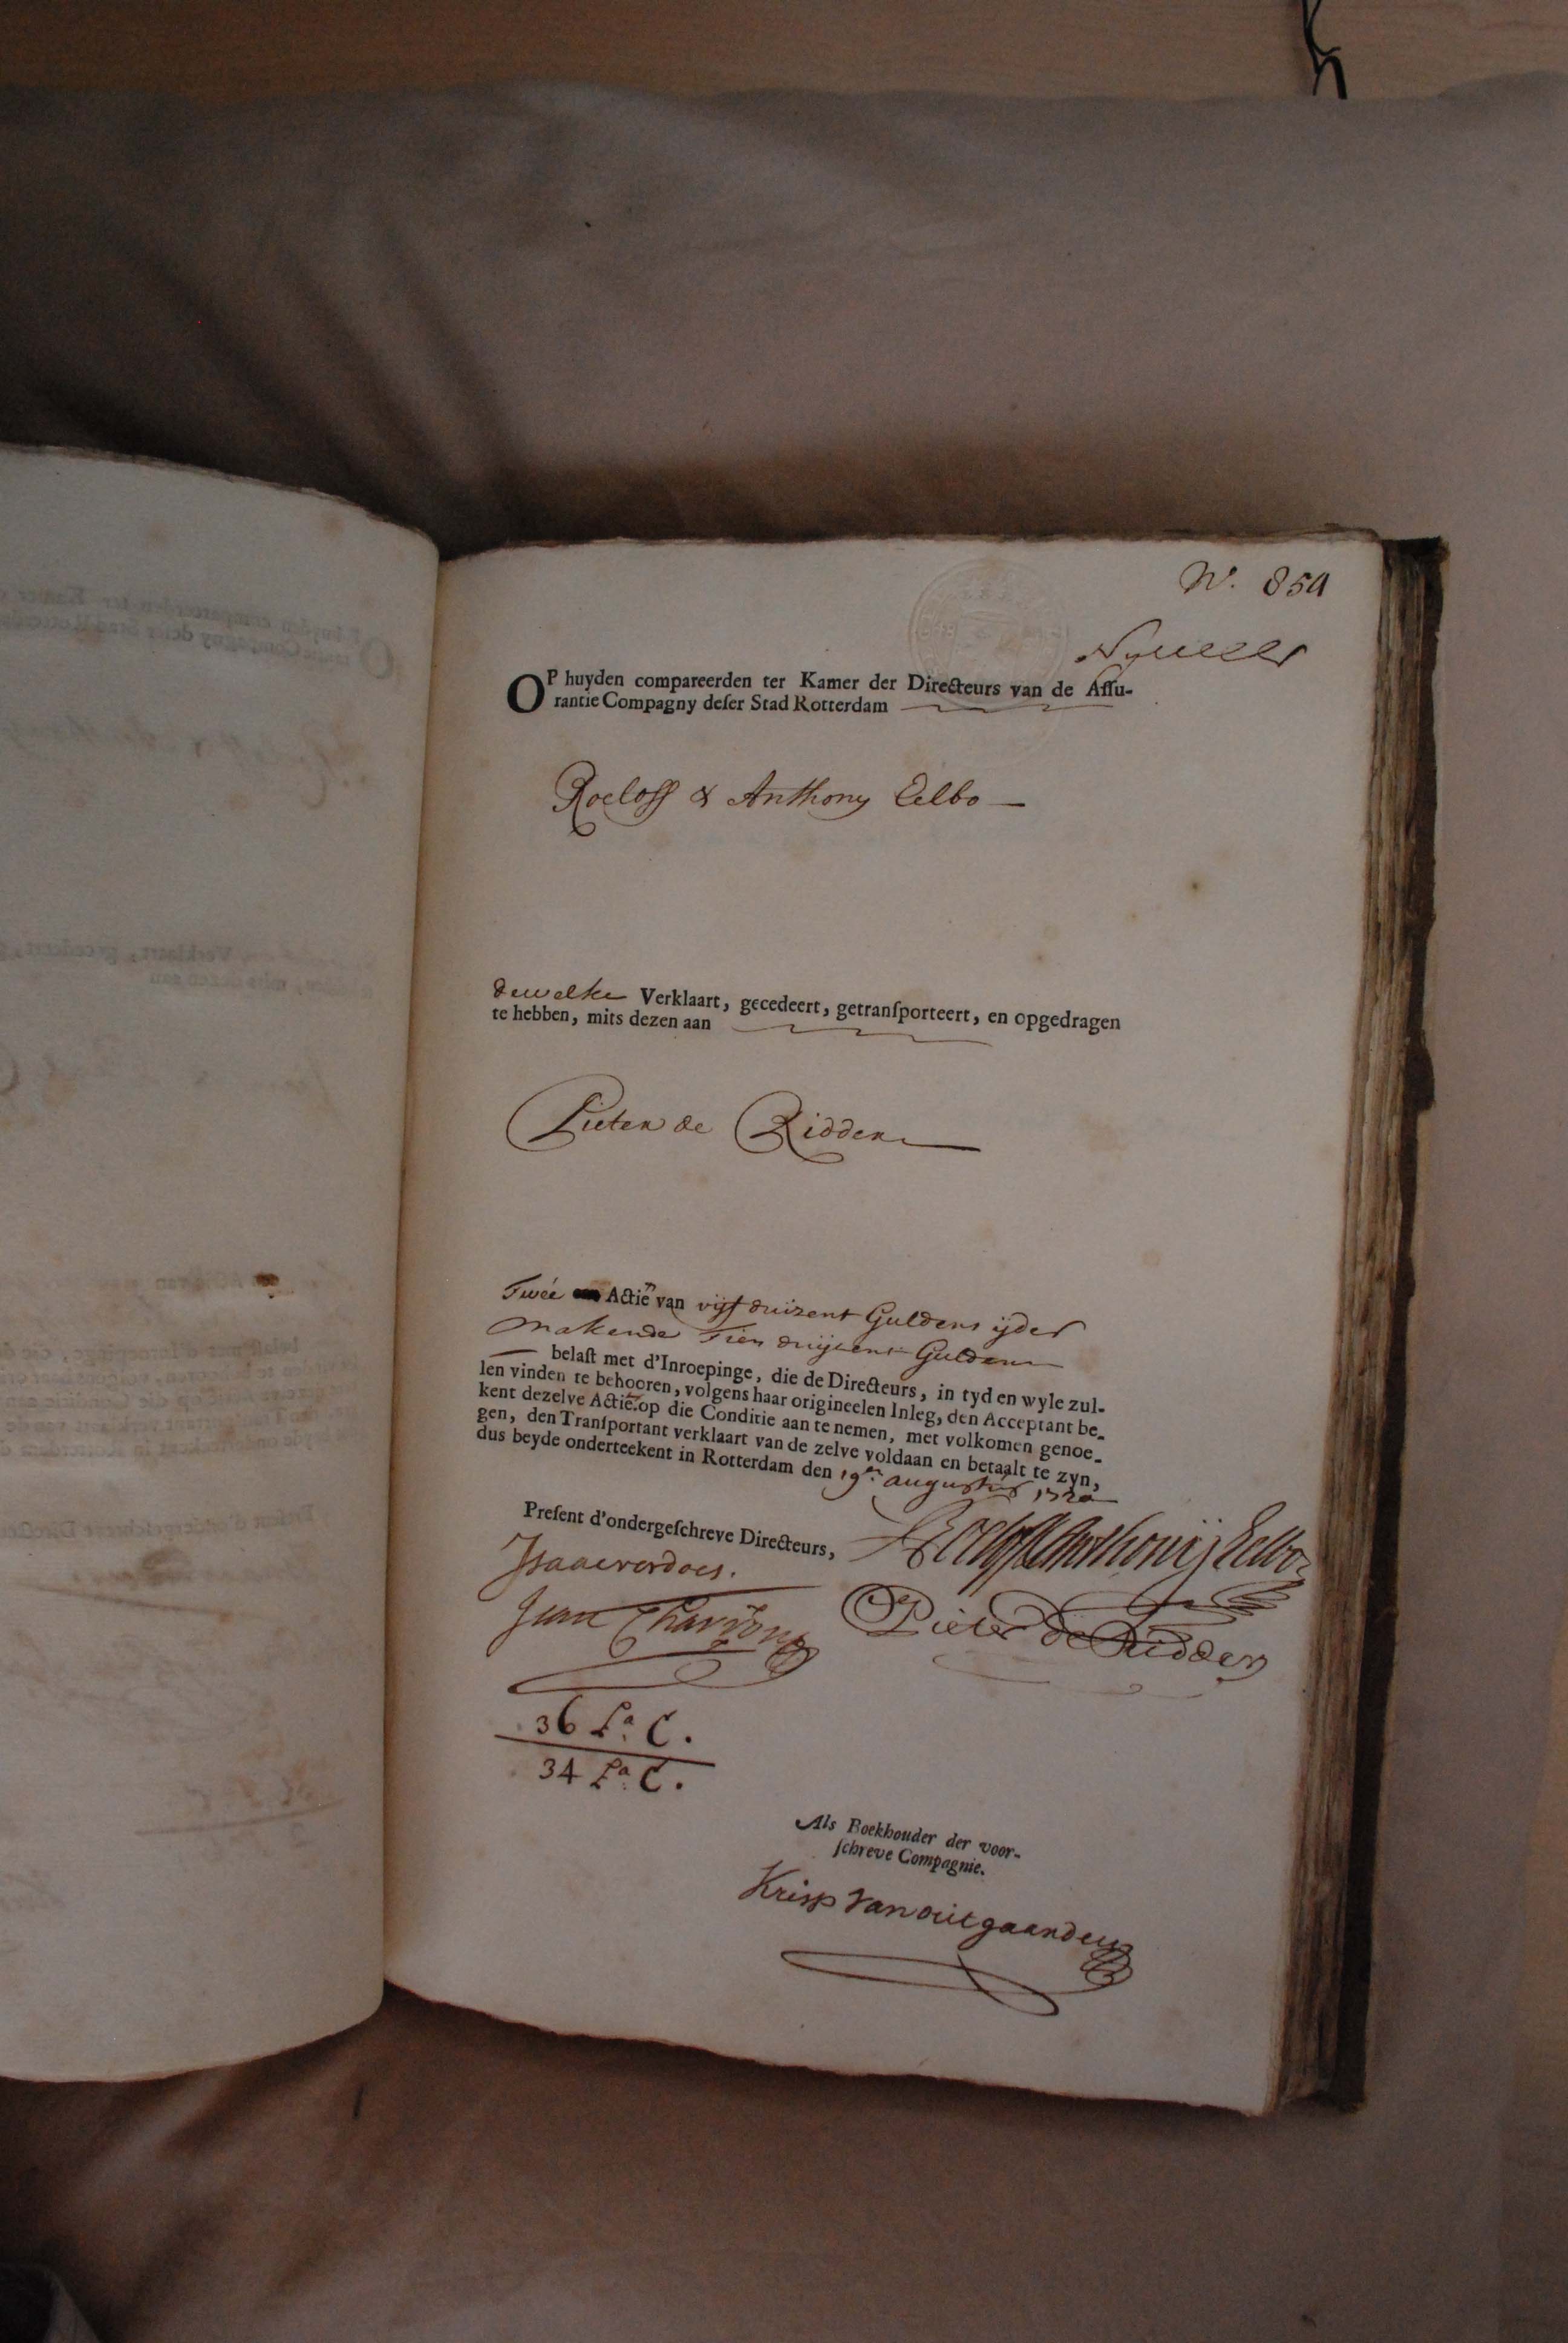 N.º 859
OP huyden compareerden ter Kamer der Directeurs van de Assu-
rantie Compagny deser Stad Rotterdam
Roeloff & Anthony Eelbo
dewelke Verklaart, gecedeert, getransporteert, en opgedragen
te hebben, mits dezen aan
Pieter de Ridder
Twée Actiën van vijf duizent Guldens ijder
makende Tien duijzent Guldens
belast met d'Inroepinge, die de Directeurs, in tyd en wyle zul-
len vinden te behooren, volgens haar origineelen Inleg, den Acceptant be-
kent dezelve Actië.op die Conditie aan te nemen, met volkomen genoe-
gen, den Transportant verklaart van de zelve voldaan en betaalt te zyn,
dus beyde onderteekent in Rotterdam den 19en augustus 1720
Present d'ondergeschreve Directeurs,
Roeloff & Anthonij Eelbo
Isaac verdoes.
Pieter de Ridder
Jean Charron
36 Pa. C.
34 Pa. C.
Als Boekhouder der voor-
schreve Compagnie.
Krisp van outgaarden